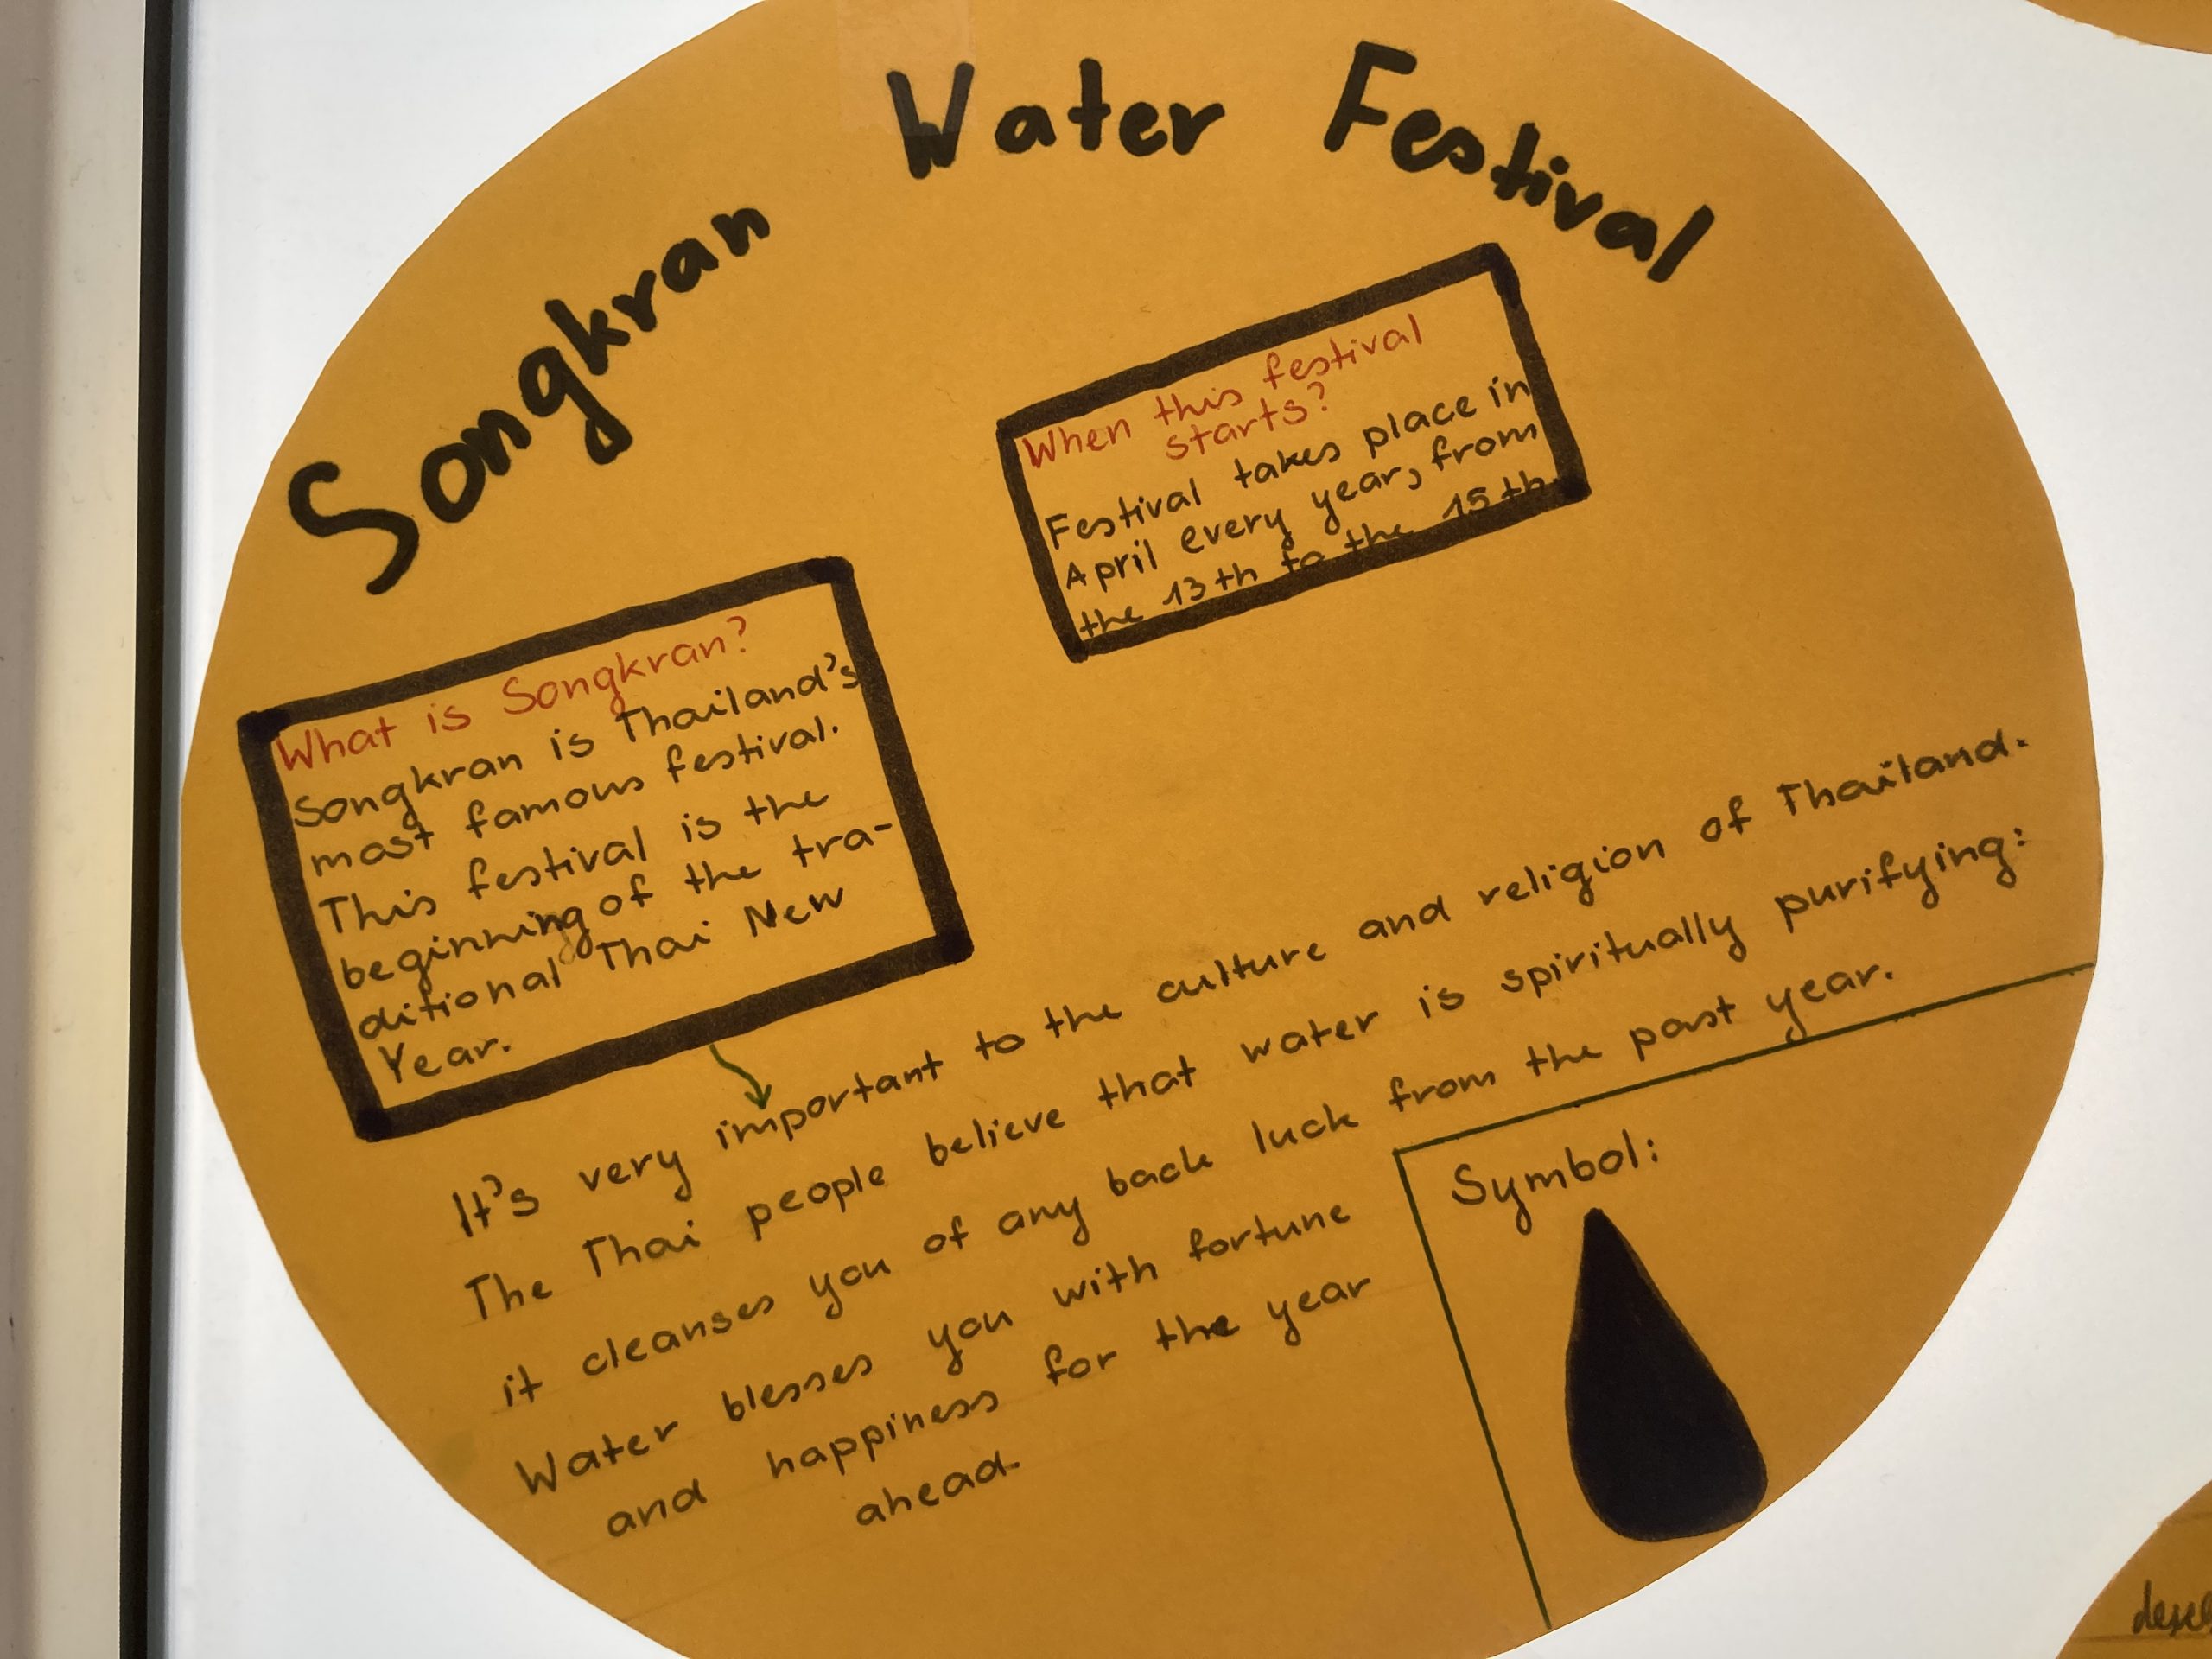 Songkran Water Festival
When this festival
starts?
Festival takes place in
April every year, from
the 13th to the 15th.
What is Songkran?
Songkran is Thailand's
most famous festival.
This festival is the
beginning of the tra-
ditional Thai New
Year.
It's very important to the culture and religion of Thailand.
The Thai people believe that water is spiritually purifying:
it cleanses you of any back luck from the past year.
Water blesses you with fortune
and happiness for the year
ahead.
Symbol: